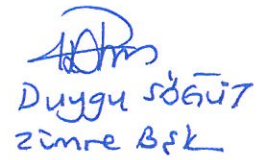 Duygu SÖĞÜT
Zümre Bşk